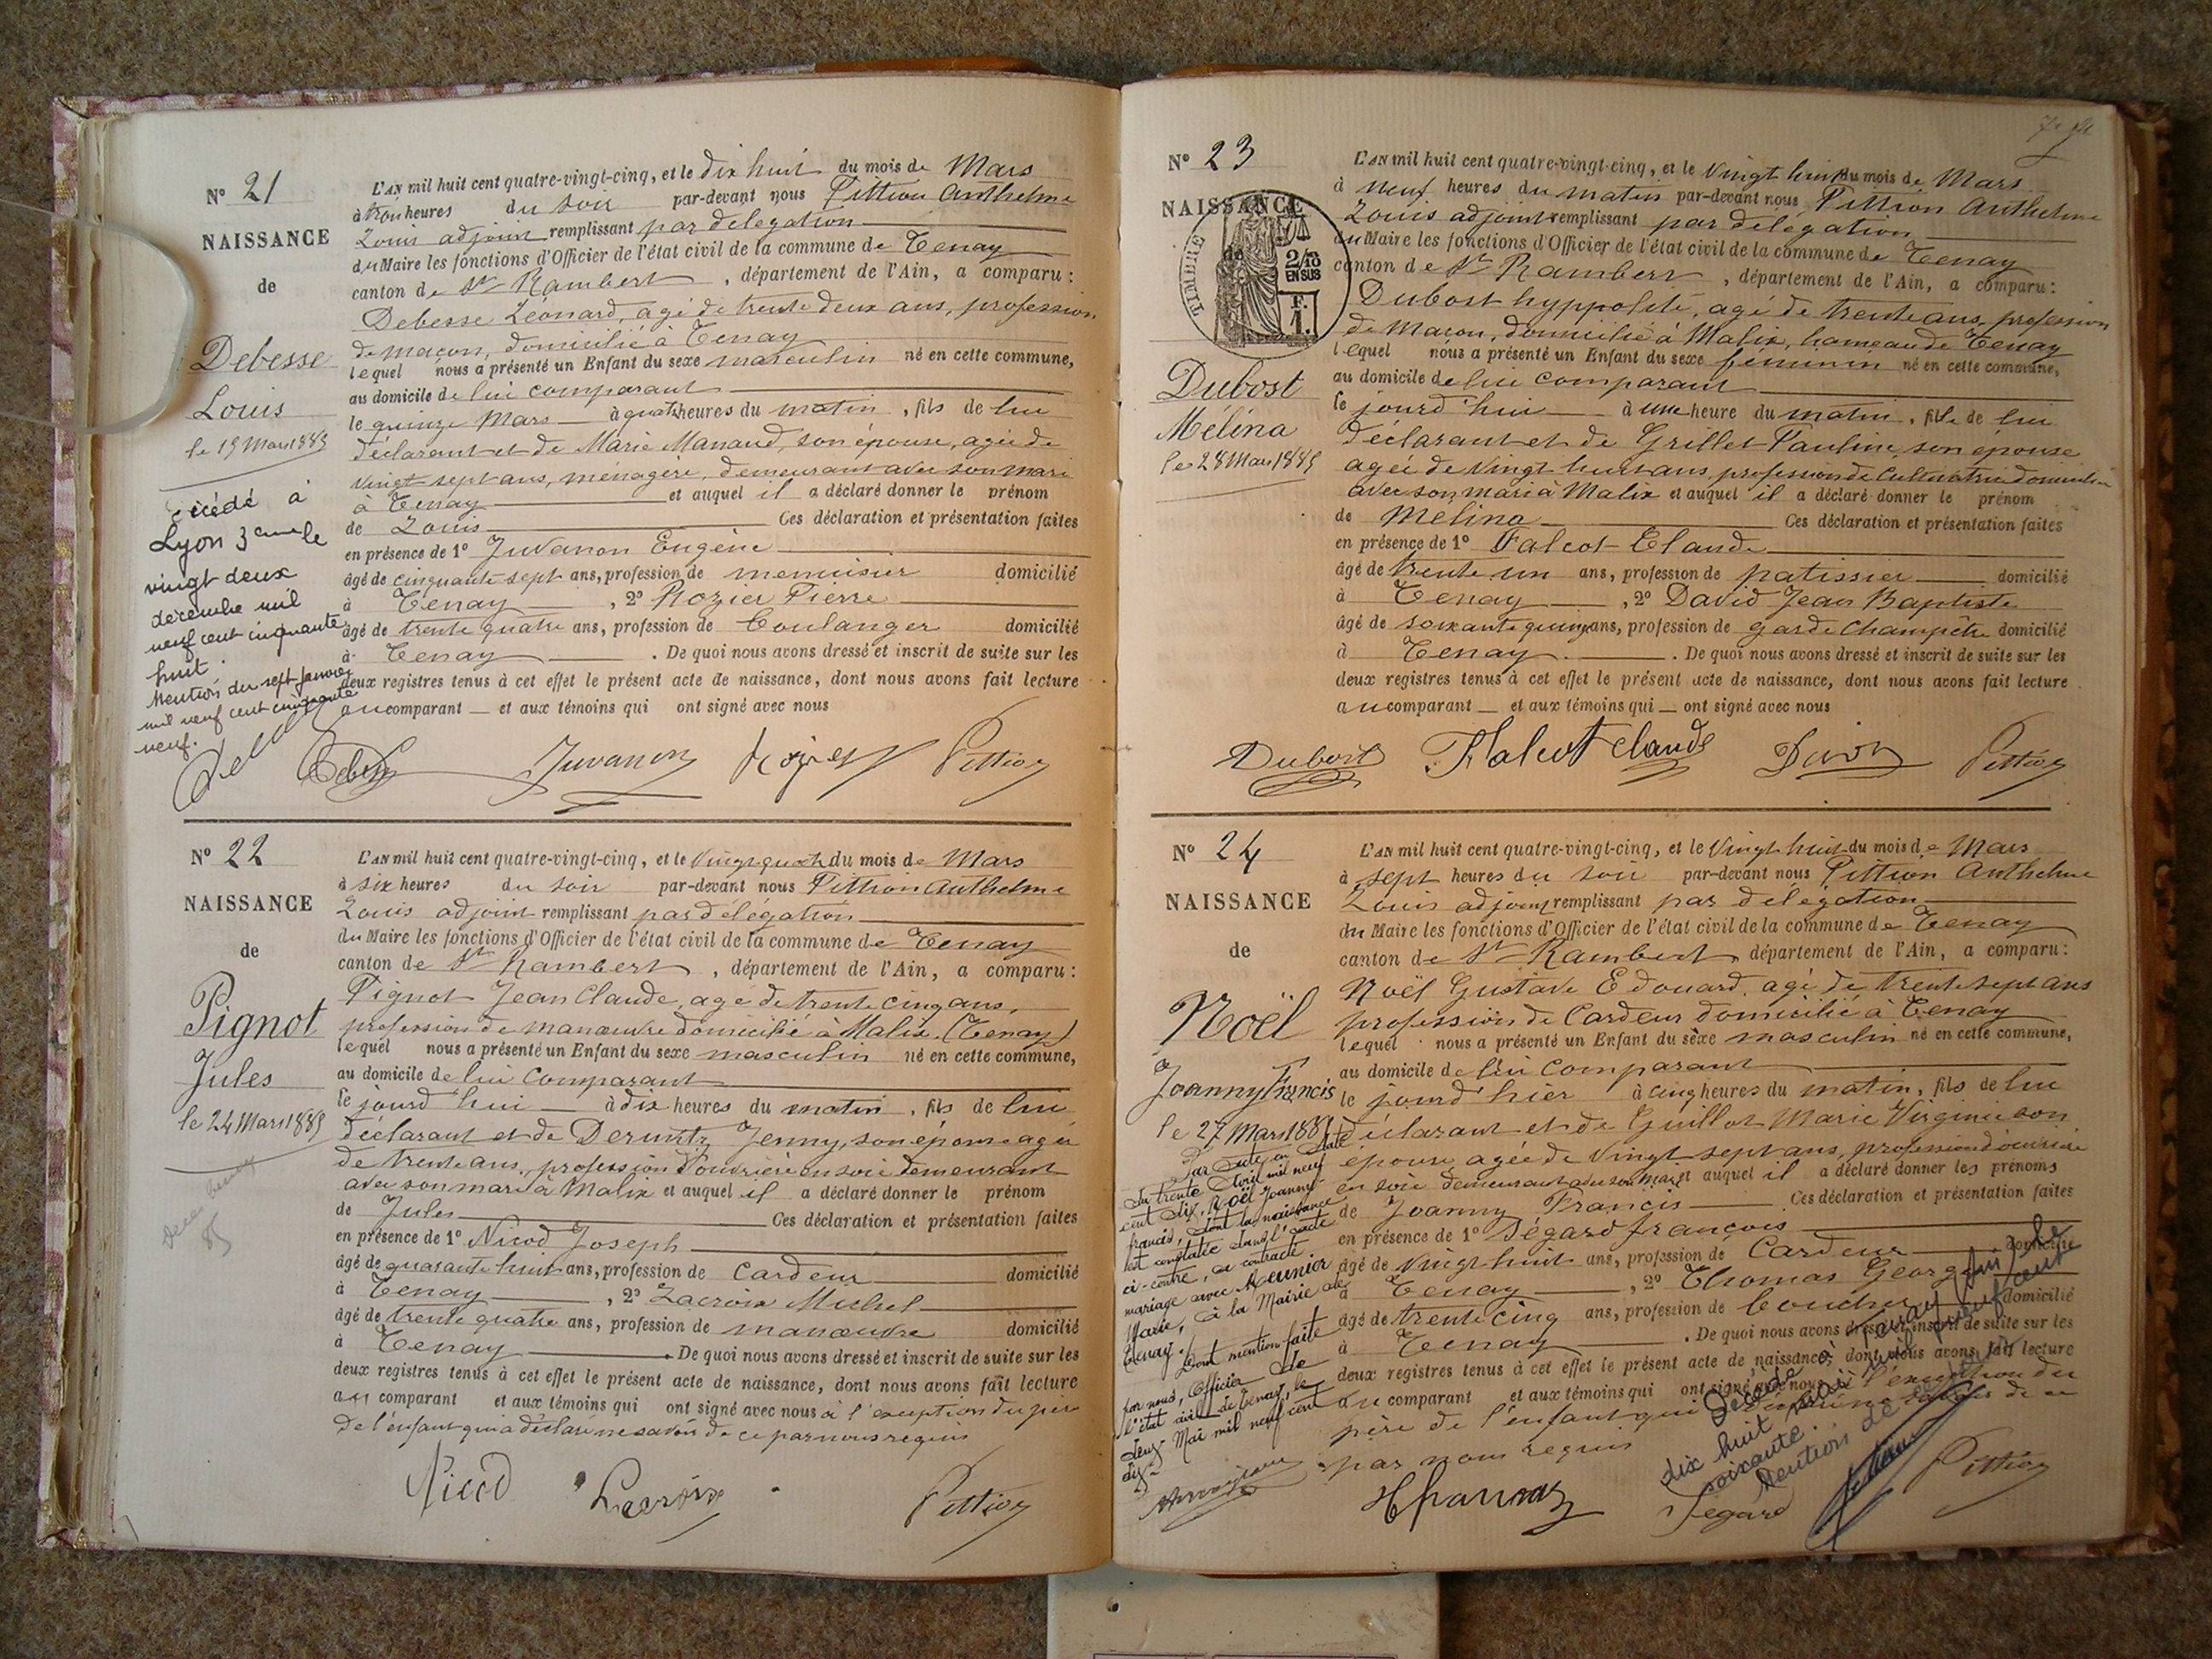 N° 21
NAISSANCE
de
Debesse
Louis
le 15 Mars 1885
Décédé à
Lyon 3eme le
vingt deux
décembre mil
neuf cent cinquante
huit.
Mention du sept janvier
mil neuf cent cinquante
neuf.
L'AN mil huit cent quatre-vingt-cinq, et le dix huit du mois de Mars
à trois heures du soir par-devant nous Pittion Anthelme
Louis adjoint remplissant par délégation
du Maire les fonctions d'Officier de l'état civil de la commune de Tenay
canton de St Rambert, département de l'Ain, a comparu :
Debesse Léonard, agé de trente deux ans, profession
de maçon, domicilié à Tenay
lequel nous a présenté un Enfant du sexe masculin né en cette commune,
au domicile de lui comparant
le quinze Mars à quatre heures du matin, fils de lui
déclarant et de Marie Manaud, son épouse, agée de
vingt sept ans, ménagère, demeurant avec son mari
à Tenay et auquel il a déclaré donner le prénom
de Louis Ces déclaration et présentation faites
en présence de 1° Juvanon Eugène
âgé de cinquante sept ans, profession de menuisier domicilié
à Tenay, 2° Rozier Pierre
âgé de trente quatre ans, profession de boulanger domicilié
à Tenay. De quoi nous avons dressé et inscrit de suite sur les
deux registres tenus à cet effet le présent acte de naissance, dont nous avons fait lecture
au comparant et aux témoins qui ont signé avec nous
Juvanon Rozier Pittion
N° 22
NAISSANCE
de
Pignot
Jules
le 24 Mars 1885
85
L'AN mil huit cent quatre-vingt-cinq, et le Vingt quatre du mois de Mars
à six heures du soir par-devant nous Pittion Anthelme
Louis adjoint remplissant par délégation
du Maire les fonctions d'Officier de l'état civil de la commune de Tenay
canton de St Rambert, département de l'Ain, a comparu :
Pignot Jean Claude, agé de trente cinq ans,
profession de manœuvre domicilié à Malix (Tenay)
lequel nous a présenté un Enfant du sexe masculin né en cette commune,
au domicile de lui comparant
le jourd'hui à dix heures du matin, fils de lui
déclarant et de Jenny, son épouse agée
de trente ans, profession d'ouvrière en soie demeurant
avec son mari à Malix et auquel il a déclaré donner le prénom
de Jules Ces déclaration et présentation faites
en présence de 1° Nicod Joseph
âgé de quarante huit ans, profession de Cardeur domicilié
à Tenay, 2° Lacroix Michel
âgé de trente quatre ans, profession de manœuvre domicilié
à Tenay. De quoi nous avons dressé et inscrit de suite sur les
deux registres tenus à cet effet le présent acte de naissance, dont nous avons fait lecture
au comparant et aux témoins qui ont signé avec nous à l'exception du père
de l'enfant qui a déclaré ne savoir de ce par nous requis
Nicod Lacroix Pittion
N° 23
NAISSANCE
de
TIMBRE
2/10
EN SUS
F.
1.
Dubost
Mélina
le 28 Mars 1885
L'AN mil huit cent quatre-vingt-cinq, et le Vingt huit du mois de Mars
à neuf heures du matin par-devant nous Pittion Anthelme
Louis adjoint remplissant par délégation
du Maire les fonctions d'Officier de l'état civil de la commune de Tenay
canton de St Rambert, département de l'Ain, a comparu :
Dubost hyppolite, agé de trente ans, profession
de maçon, domicilié à Malix, hameau de Tenay
lequel nous a présenté un Enfant du sexe féminin né en cette commune,
au domicile de lui comparant
le jourd'hui à une heure du matin, fille de lui
déclarant et de Grillet Pauline, son épouse
agée de vingt huit ans, profession de Cultivatrice domiciliée
avec son mari à Malix et auquel il a déclaré donner le prénom
de Mélina Ces déclaration et présentation faites
en présence de 1° Falcot Claude
âgé de trente un ans, profession de patissier domicilié
à Tenay, 2° David Jean Baptiste
âgé de soixante quinze ans, profession de garde Champêtre domicilié
à Tenay. De quoi nous avons dressé et inscrit de suite sur les
deux registres tenus à cet effet le présent acte de naissance, dont nous avons fait lecture
au comparant et aux témoins qui ont signé avec nous
Dubost Falcot Claude David Pittion
N° 24
NAISSANCE
de
Noël
Joanny Francis
le 27 Mars 1885
Par acte en date
du trente Avril mil neuf
cent dix, Noël Joanny
francis, dont la naissance
est constatée dans l'acte
ci-contre, a contracté
mariage avec Meunier
Marie, à la Mairie de
Tenay.
Dont mention faite
par nous, Officier de
l'état civil de Tenay, le
deux Mai mil neuf cent
dix.
L'AN mil huit cent quatre-vingt-cinq, et le Vingt huit du mois de Mars
à sept heures du soir par-devant nous Pittion Anthelme
Louis adjoint remplissant par délégation
du Maire les fonctions d'Officier de l'état civil de la commune de Tenay
canton de St Rambert département de l'Ain, a comparu :
Noël Gustave Edouard, agé de trente sept ans
profession de Cardeur domicilié à Tenay
lequel nous a présenté un Enfant du sexe masculin né en cette commune,
au domicile de lui comparant
le jourd'hier à cinq heures du matin, fils de lui
déclarant et de Guillot Marie Virginie son
épouse, agée de vingt sept ans, profession d'ouvrière
en soie demeurant avec son mari et auquel il a déclaré donner les prénoms
de Joanny Francis Ces déclaration et présentation faites
en présence de 1° Ségard françois
âgé de vingt huit ans, profession de Cardeur domicilié
à Tenay, 2° Thomas Georges
âgé de trente cinq ans, profession de boucher domicilié
à Tenay. De quoi nous avons dressé et inscrit de suite sur les
deux registres tenus à cet effet le présent acte de naissance, dont nous avons fait lecture
au comparant et aux témoins qui ont signé avec nous à l'exception du
père de l'enfant qui de ce
par nous requis
Décédé à Tenay (Ain) le
dix huit mil neuf cent
soixante.
Mention
Ségard Pittion